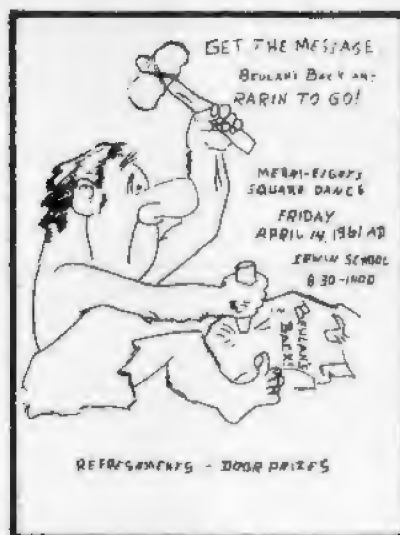 GET THE MESSAGE
BEULAHS BACK AND
RARIN TO GO!
MERRI-EIGHTS
SQUARE DANCE
FRIDAY
APRIL 14, 1961 AD
IRWIN SCHOOL
8 30-1100
BEULAHS
BACK!
REFRESHMENTS - DOOR PRIZES